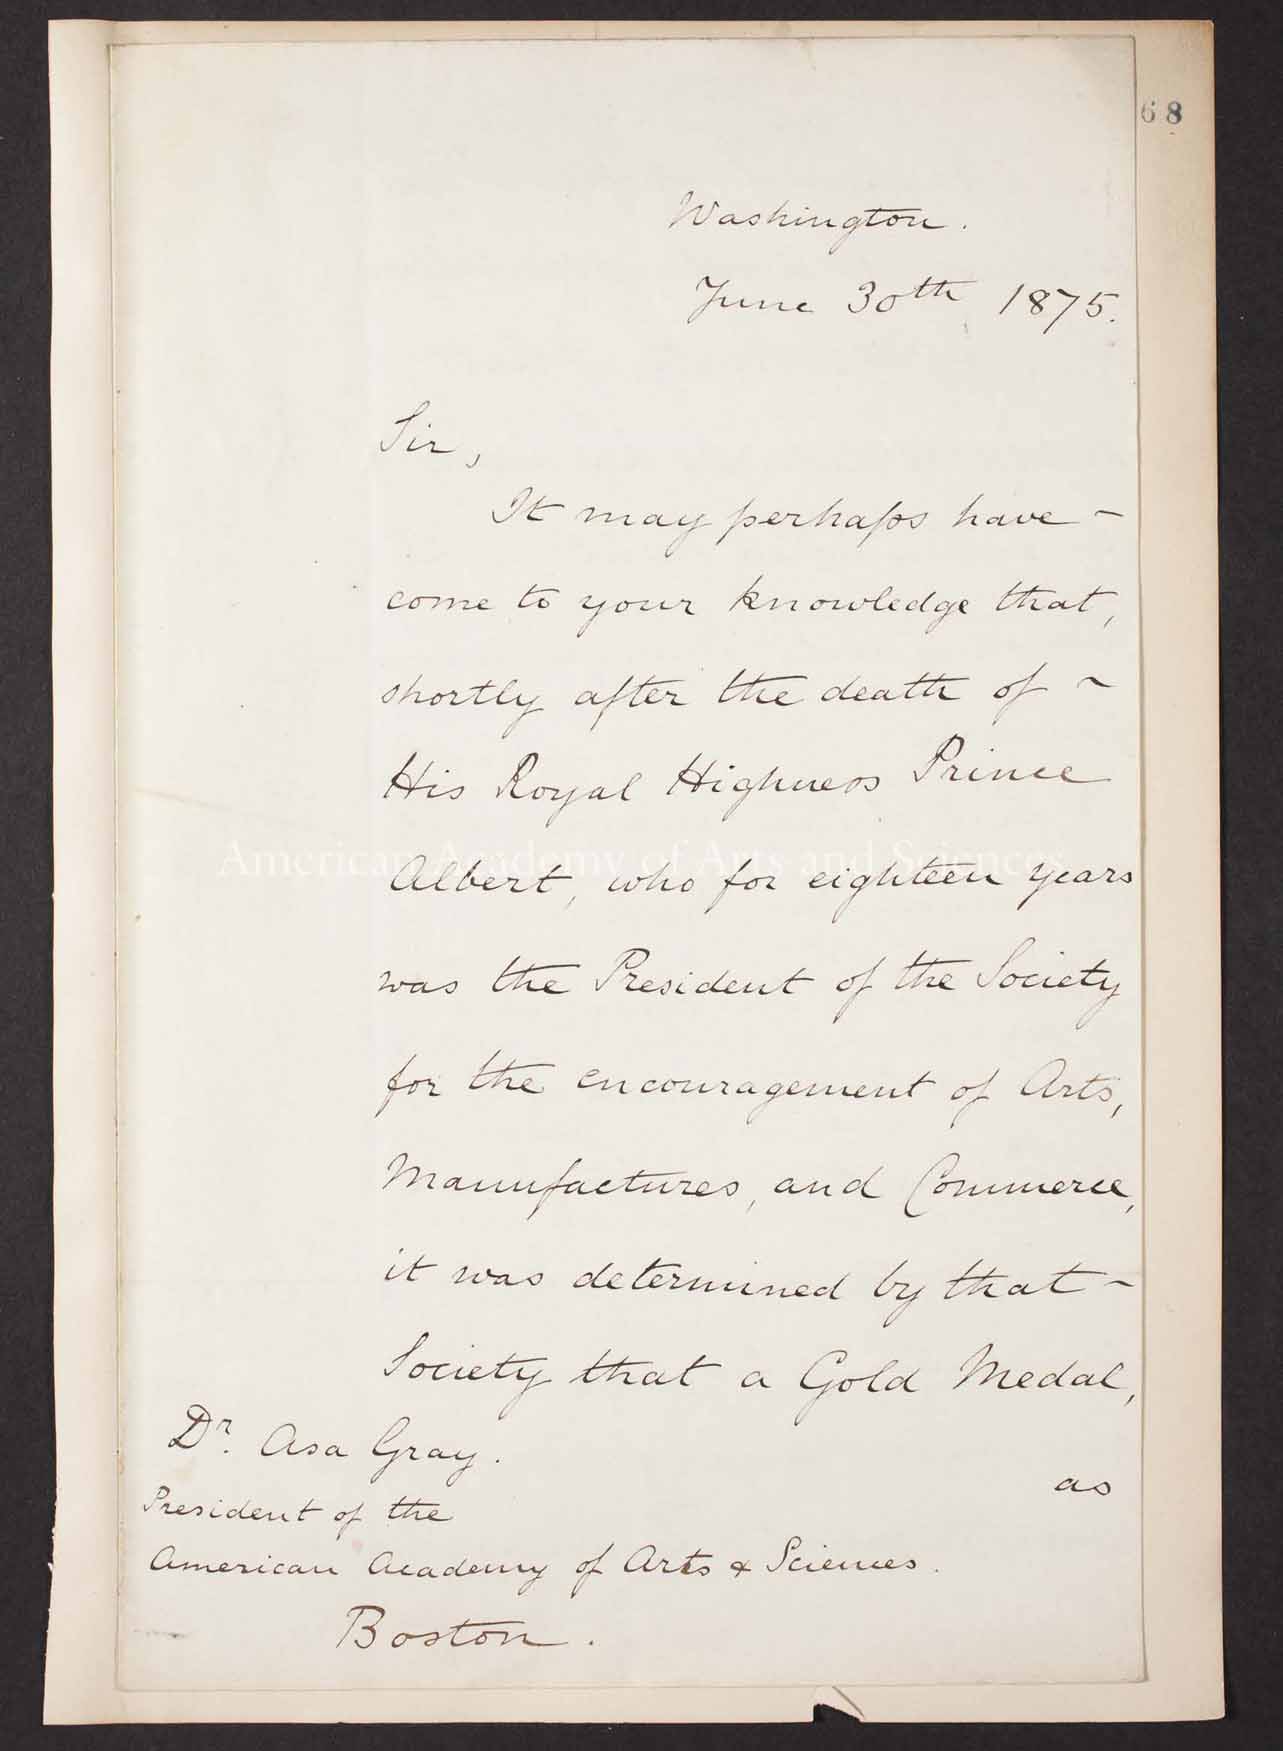 68
Washington.
June 30th 1875.
Sir,
It may perhaps have -
come to your knowledge that,
shortly after the death of ~
His Royal Highness Prince
American Academy of Arts and Sciences
Albert, who for eighteen years
was the President of the Society
for the encouragement of Arts,
Manufactures, and Commerce,
it was determined by that -
Society that a Gold Medal,
as
Dr. Asa Gray.
President of the
American Academy of Arts & Sciences.
Boston.